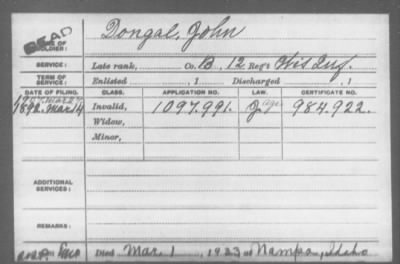 DEAD
NAME OF SOLDIER: Dongal, John
SERVICE: Late rank, Co. B, 12 Reg't Wis Inf.
TERM OF SERVICE: Enlisted , 1 Discharged , 1
DATE OF FILING. CLASS. APPLICATION NO. LAW. CERTIFICATE NO.
1892. Mar 14 Invalid, 1097.991. 984.922.
Widow,
Minor,
ADDITIONAL SERVICES:
REMARKS:
Died Mar. 1, 1933 at Nampa, Idaho